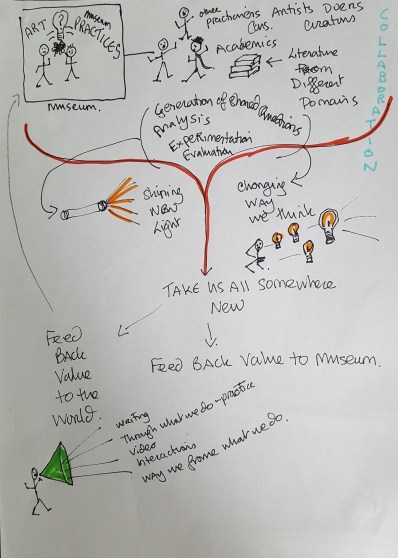 ART
?
Museum
PRACTICES
Museum.
other
Practitioners Artists Doers
Cons. Curators
Academics
Literature
From
Different
Domains
COLLABORATION
Generation of Shared Questions
Analysis
Experimentation
Evaluation
Shining
New
Light
Changing
way
we think
TAKE US All Somewhere
New
Feed
Back
Value
to the
World.
Feed BACK Value to Museum.
writing
Through what we do - practice
Video
Interactions
Way we frame what we do.